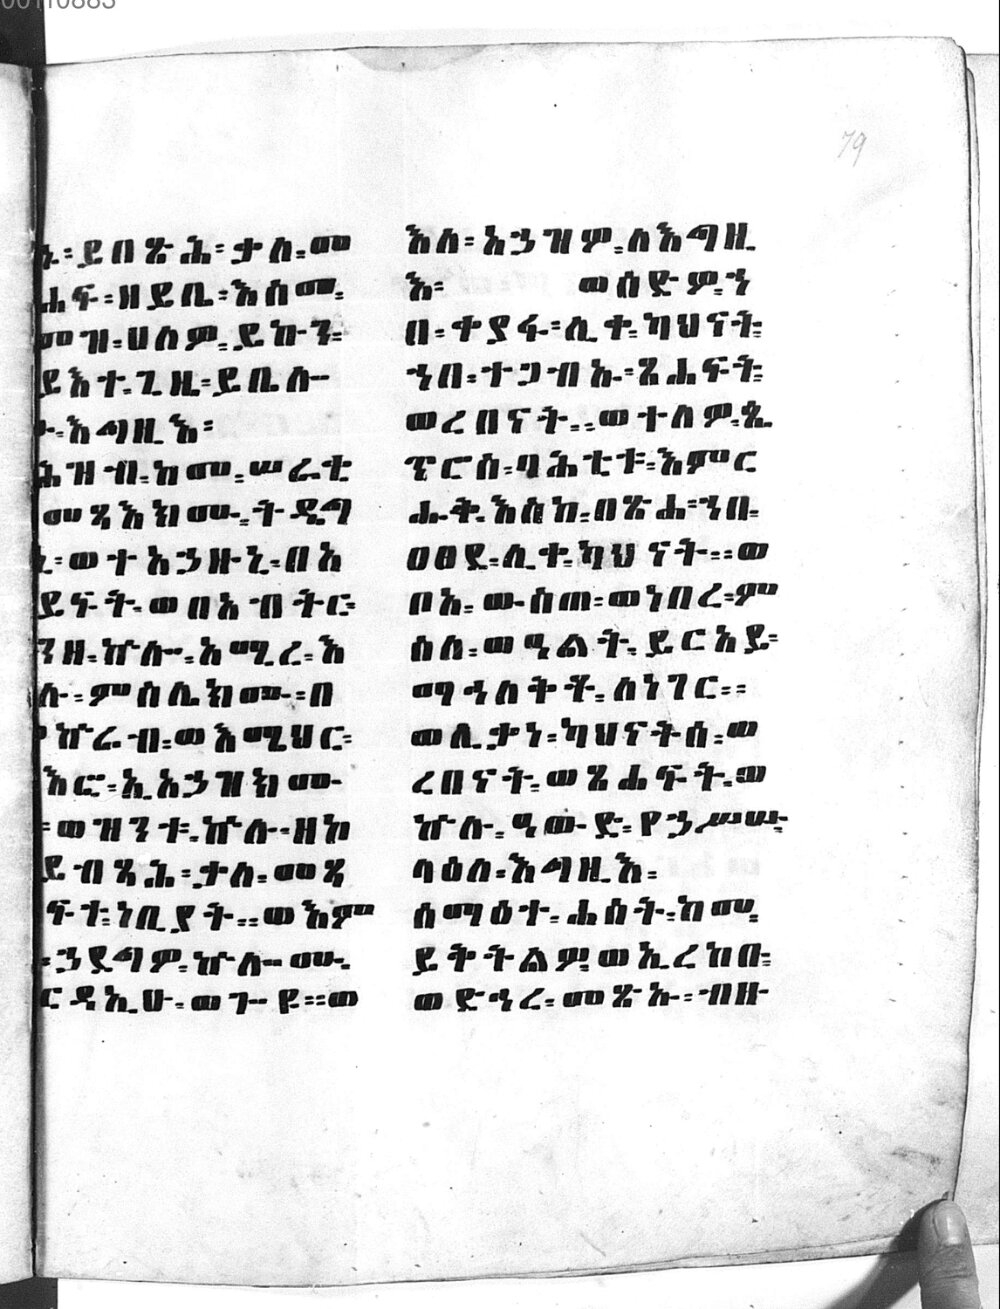 00110883
79
ኒ፡ይበጽሕ፡ታሰ፡መ
ሐፍ፡ዘይቤ፡እስመ፡
መዝ፡ሀሰዎ፡ይኩን፡
ይእተ፡ጊዜ፡ይቤሎ
ሙ፡እግዚእ፡
ሕዝብ፡ከመ፡ሠራቂ
መጻእክሙ፡ትዳግ
ኒ፡ወተአኃዙኒ፡በአ
ይፍት፡ወበአብትር፡
ንዘ፡ኵሎ፡አሚረ፡እ
ሉ፡ምስሌክሙ፡በ
ኵራብ፡ወእሜህር፡
እፎ፡ኢአኃዝክሙ
፡ወዝንቱ፡ኵሉ፡ዘከ
ይብጻሕ፡ታሰ፡መጻ
ፍተ፡ነቢያት፡፡ወእም
፡ኃደግዎ፡ኵሎሙ፡
ርዳኢሁ፡ወጐዩ፡፡ወ
እለ፡አኃዝዎ፡ለእግዚ
እ፡ ወሰድዎ፡ን
በ፡ቀያፋ፡ሊቀ፡ካህናት፡
ኀበ፡ተጋብኡ፡ጸሐፍት፡
ወረበናት፡፡ወተለዎ፡ጴ
ጥሮስ፡ባሕቲቱ፡እምር
ሑቅ፡እስከ፡በጽሐ፡ኀበ፡
ዐፀደ፡ሊቀ፡ካህናት፡፡ወ
ቦአ፡ውስጠ፡ወነበረ፡ም
ስለ፡ወዓልት፡ይርአይ፡
ማኅለቅቶ፡ለነገር፡፡
ወሊቃነ፡ካህናትሰ፡ወ
ረበናት፡ወጸሐፍት፡ወ
ኵሉ፡ዓውድ፡የኃሥሡ፡
ላዕለ፡እግዚእ፡
ሰማዕተ፡ሐሰት፡ከመ፡
ይቅትልዎ፡ወኢረከቡ፡
ወድኅረ፡መጽኡ፡ብዙ